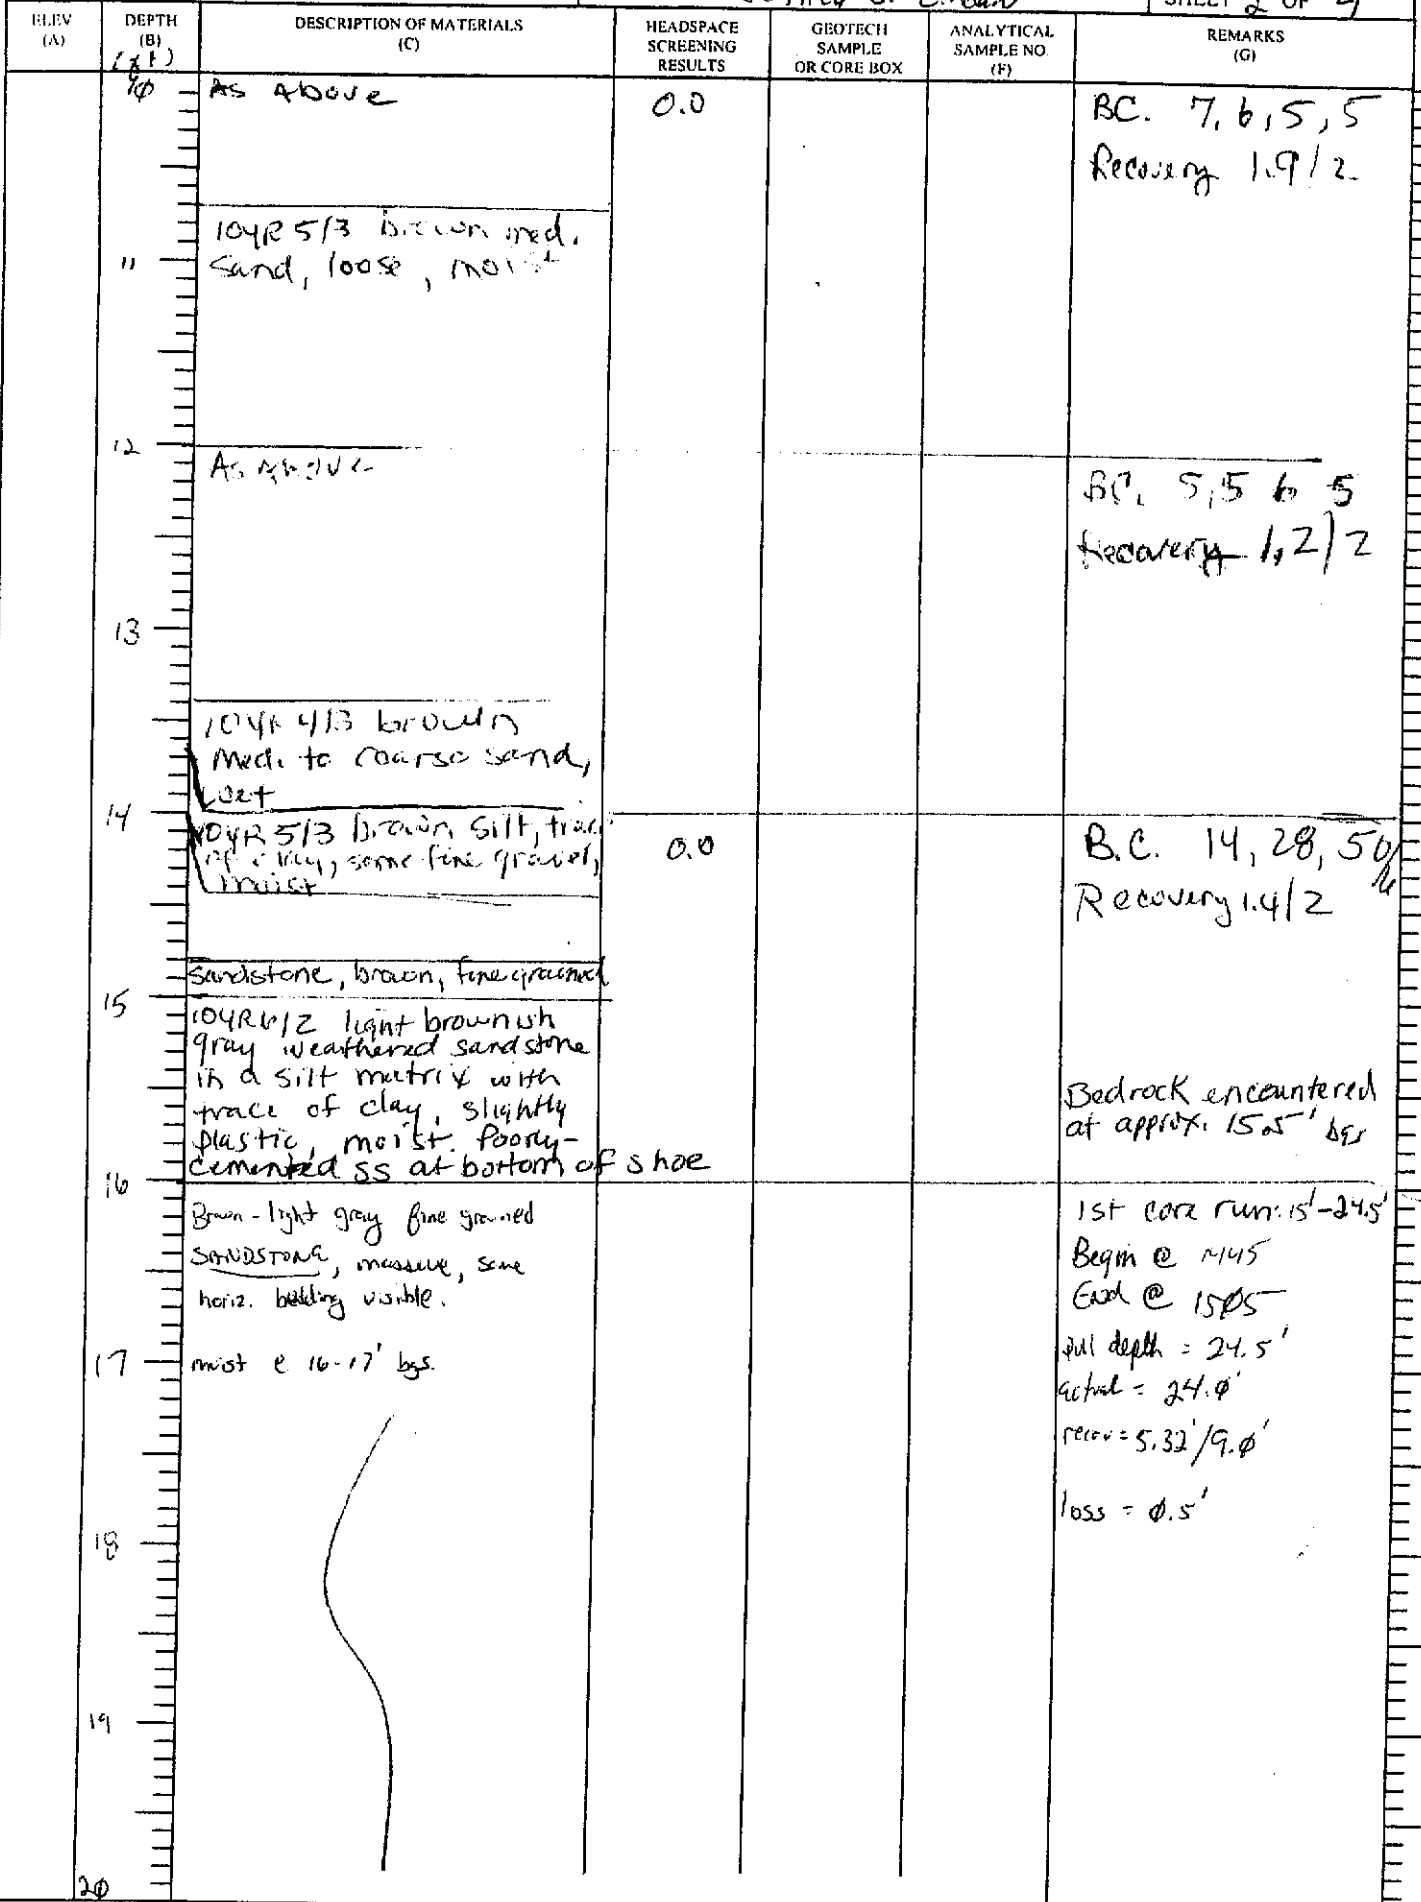 SHEET 2 OF 4
ELEV (A)
DEPTH (B) (ft)
DESCRIPTION OF MATERIALS (C)
HEADSPACE SCREENING RESULTS
GEOTECH SAMPLE OR CORE BOX
ANALYTICAL SAMPLE NO. (F)
REMARKS (G)
1φ
As Above
0.0
BC. 7, 6, 5, 5
Recovery 1.9/2
10YR 5/3 brown med.
11
Sand, loose, moist
12
As Above
BC. 5,5 6 5
Recovery 1.2/2
13
10YR 4/3 brown
Med. to coarse sand,
wet
14
10YR 5/3 brown silt, trace
of clay, some fine gravel,
moist
0.0
B.C. 14, 28, 50/
Recovery 1.4/2
Sandstone, brown, fine grained
15
10YR 6/2 light brownish
gray weathered sandstone
in a silt matrix with
trace of clay, slightly
plastic, moist. Poorly-
cemented ss at bottom of shoe
Bedrock encountered
at approx. 15.5' bgs
16
Brown-light gray fine grained
SANDSTONE, massive, some
horiz. bedding visible.
17
moist @ 16-17' bgs.
1st core run: 15'-24.5'
Begin @ 1445
End @ 15φ5
pull depth = 24.5'
actual = 24.φ'
recov = 5.32'/9.φ'
loss = φ.5'
18
19
2φ